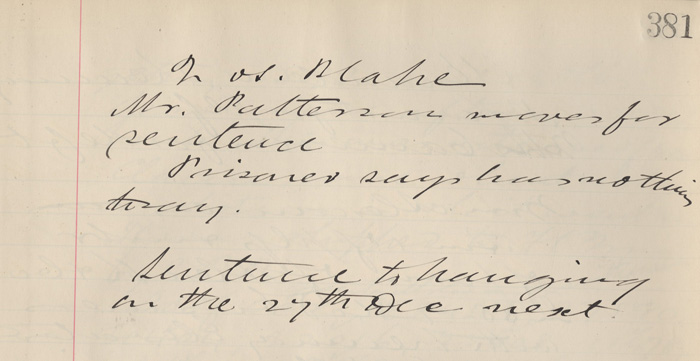 381
Q vs. Blake
Mr. Patterson moves for
sentence
Prisoner says has nothing
to say.
Sentence to hanging
on the 27th Dec next